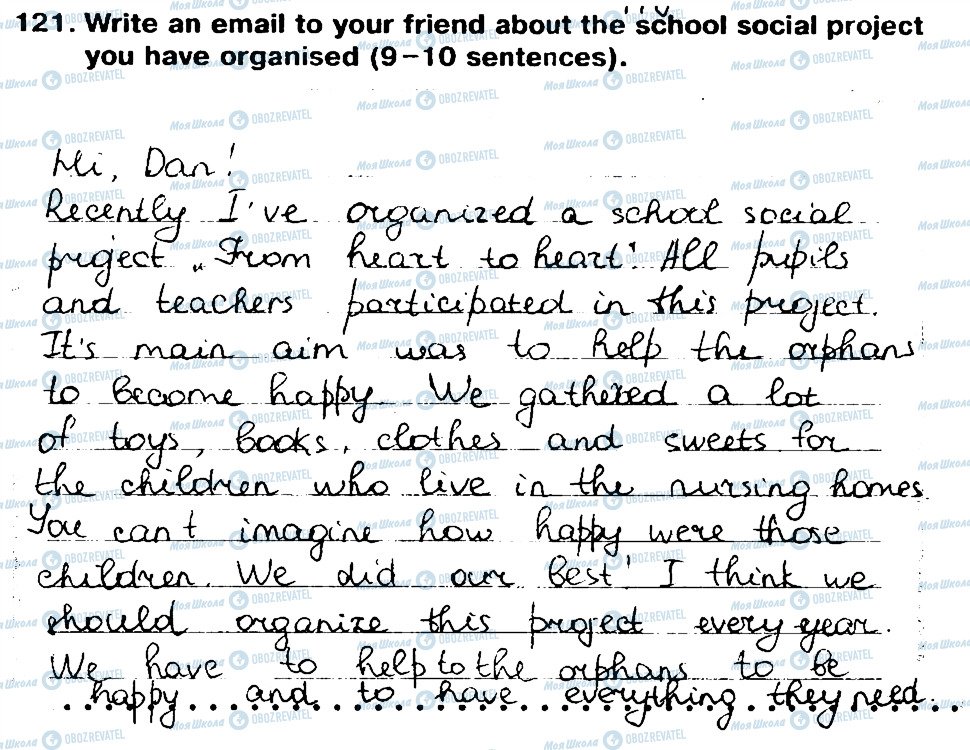 121. Write an email to your friend about the school social project
you have organised (9–10 sentences).
Hi, Dan!
Recently I've organized a school social
project „From heart to heart". All pupils
and teachers participated in this project.
It's main aim was to help the orphans
to become happy. We gathered a lot
of toys, books, clothes and sweets for
the children who live in the nursing homes.
You can't imagine how happy were those
children. We did our best! I think we
should organize this project every year.
We have to help to the orphans to be
happy and to have everything they need.
Моя Школа OBOZREVATEL